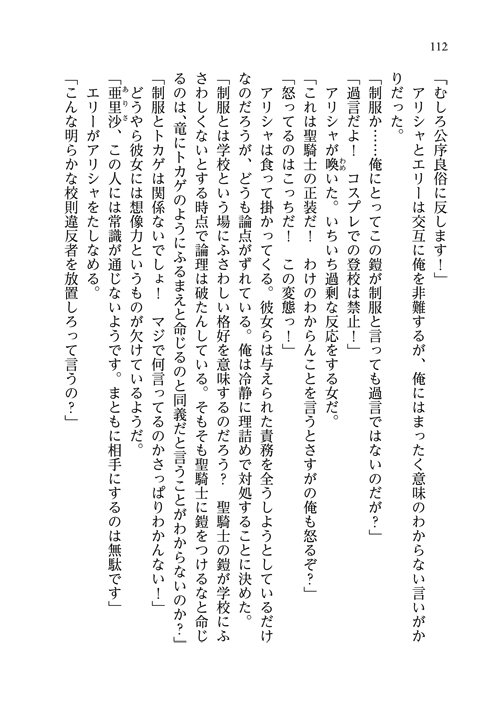 112
「むしろ公序良俗に反します！」
　アリシャとエリーは交互に俺を非難するが、俺にはまったく意味のわからない言いがか
りだった。
「制服か……俺にとってこの鎧が制服と言っても過言ではないのだが？」
「過言だよ！　コスプレでの登校は禁止！」
　アリシャが喚いた。いちいち過剰な反応をする女だ。
「これは聖騎士の正装だ！　わけのわからんことを言うとさすがの俺も怒るぞ？」
「怒ってるのはこっちだ！　この変態っ！」
　アリシャは食って掛かってくる。彼女らは与えられた責務を全うしようとしているだけ
なのだろうが、どうも論点がずれている。俺は冷静に理詰めで対処することに決めた。
「制服とは学校という場にふさわしい格好を意味するのだろう？　聖騎士の鎧が学校にふ
さわしくないとする時点で論理は破たんしている。そもそも聖騎士に鎧をつけるなと命じ
るのは、竜にトカゲのようにふるまえと命じるのと同義だと言うことがわからないのか？」
「制服とトカゲは関係ないでしょ！　マジで何言ってるのかさっぱりわかんない！」
　どうやら彼女には想像力というものが欠けているようだ。
「亜里沙、この人には常識が通じないようです。まともに相手にするのは無駄です」
　エリーがアリシャをたしなめる。
「こんな明らかな校則違反者を放置しろって言うの？」